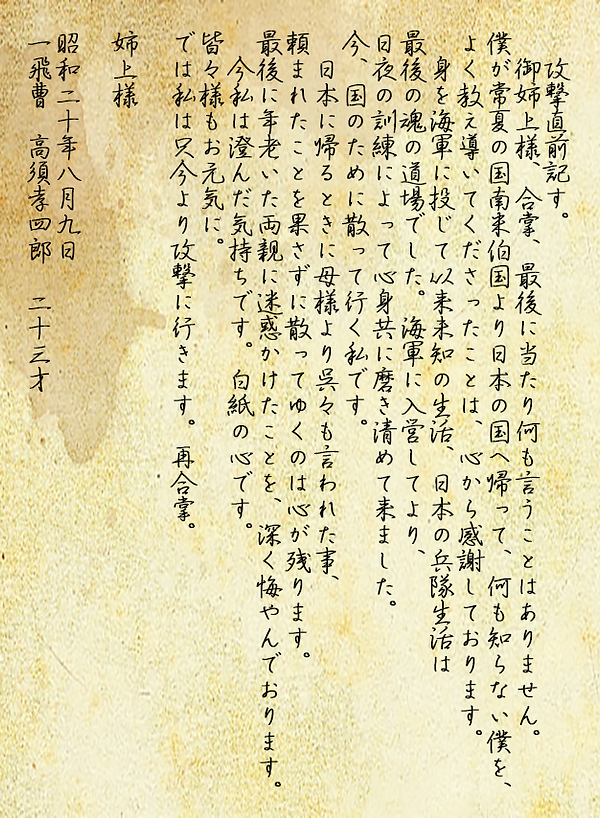 攻撃直前記す。
御姉上様、合掌、最後に当たり何も言うことはありません。
僕が常夏の国南米伯国より日本の国へ帰って、何も知らない僕を、
よく教え導いてくださったことは、心から感謝しております。
身を海軍に投じて以来未知の生活、日本の兵隊生活は
最後の魂の道場でした。海軍に入営してより、
日夜の訓練によって心身共に磨き清めて来ました。
今、国のために散って行く私です。
日本に帰るときに母様より呉々も言われた事、
頼まれたことを果さずに散ってゆくのは心が残ります。
最後に年老いた両親に迷惑かけたことを、深く悔やんでおります。
今私は澄んだ気持ちです。白紙の心です。
皆々様もお元気に。
では私は只今より攻撃に行きます。再合掌。
姉上様
昭和二十年八月九日
一飛曹 高須孝四郎 二十三才